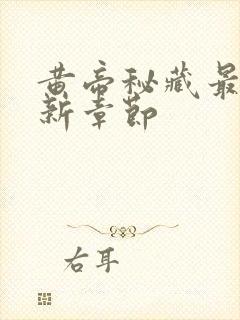 黄帝秘藏最
新章节
右耳